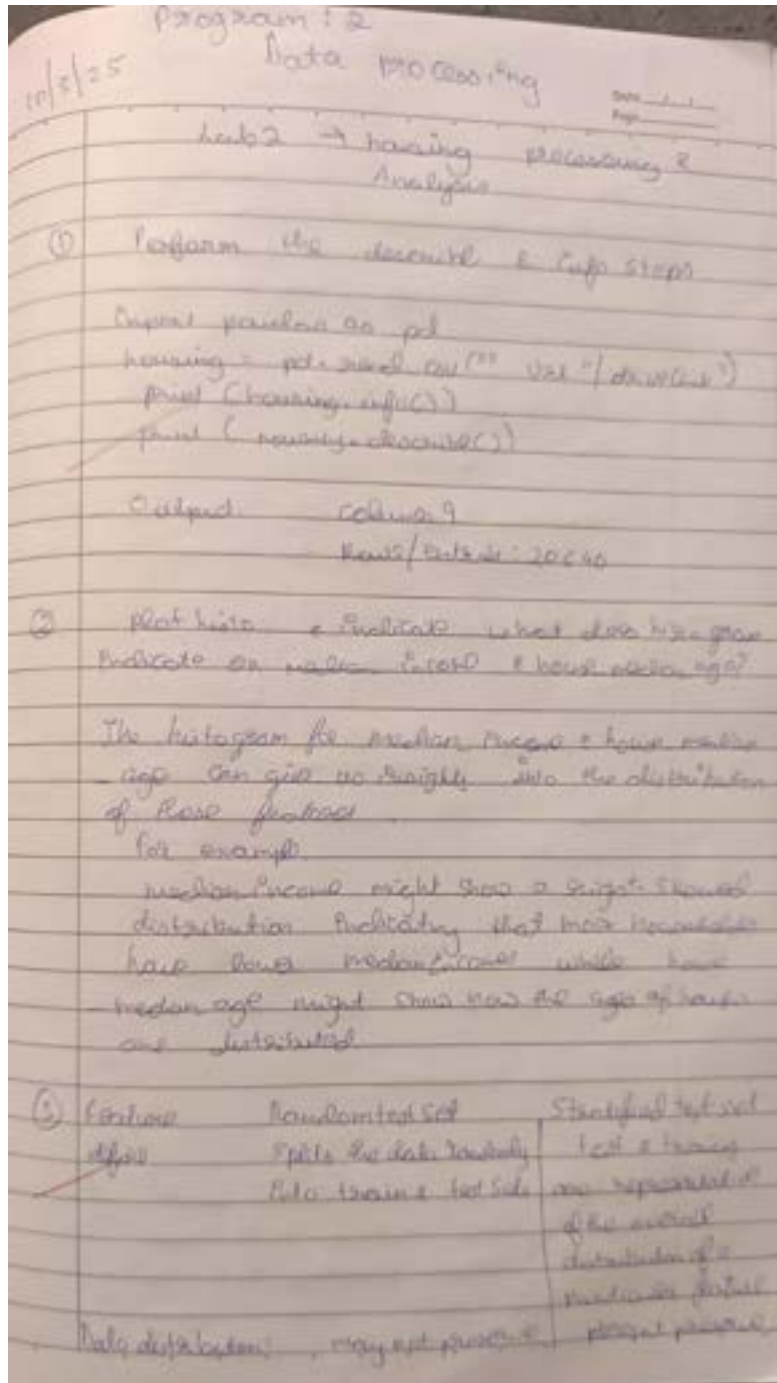 Program : 2
Data processing
10/3/25
Date
Page
Lab 2 → housing processing &
Analysis
① Perform the describe & info steps
Import pandas as pd
housing = pd. read csv ("
print (housing. info())
print ( housing. describe())
Output
Rows/ : 20640
② plot histo & indicate what does histogram
indicate on median income & house median age?
The histogram for median income & house median
age can give us insights into the distribution
of these features.
for example.
median income might show a right-skewed
distribution indicating that most households
have lower median incomes while house
median age might show how the ages of houses
are distributed
③ Feature Random test set Stratified test set
splits the data randomly test & training
into train & test sets are representative
of the overall
distribution of a
particular feature
Data distribution: may not preserve preserve